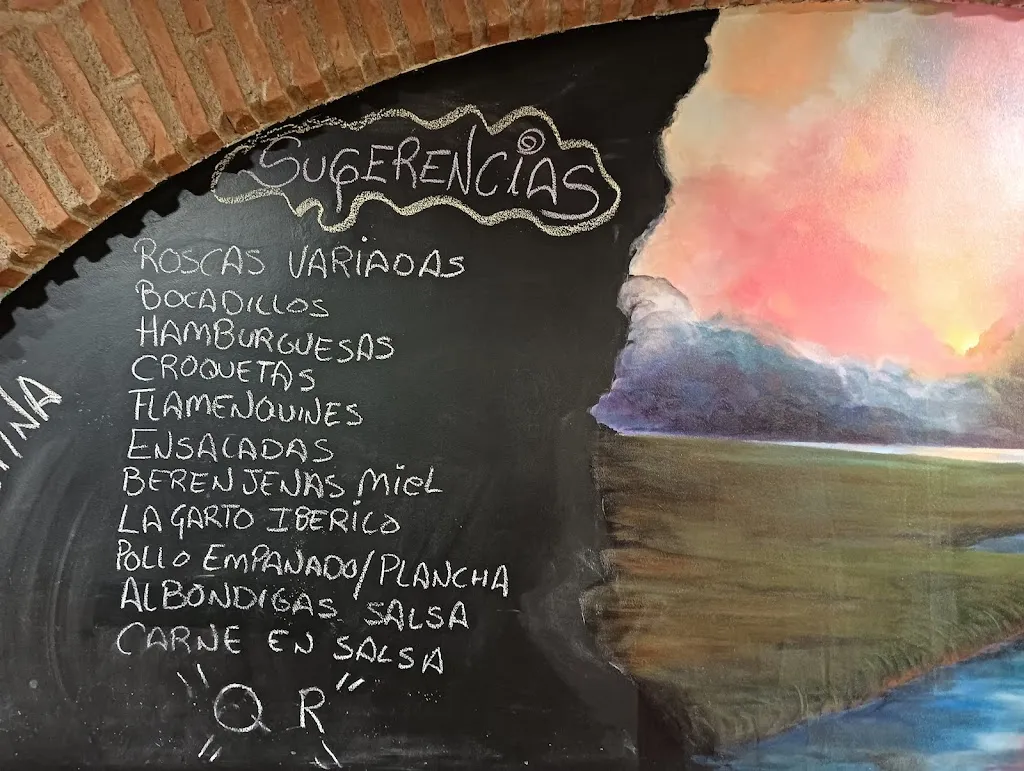 SUGERENCIAS
ROSCAS VARIADAS
BOCADILLOS
HAMBURGUESAS
CROQUETAS
FLAMENQUINES
ENSALADAS
BERENJENAS MIEL
LAGARTO IBERICO
POLLO EMPANADO/PLANCHA
ALBONDIGAS SALSA
CARNE EN SALSA
QR